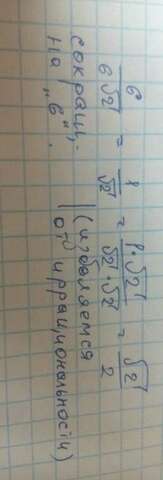 6/(6√2) = 1/√2 = (1·√2)/(√2·√2) = √2/2
сократи- | (избавляемся
на „6“. | от иррациональности)